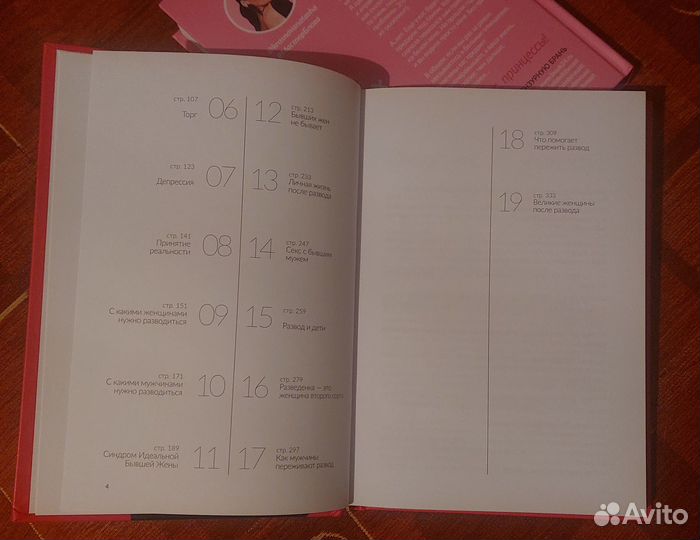 принцессы!
стр. 107
Торг
06
стр. 123
Депрессия
07
стр. 141
Принятие
реальности
08
стр. 151
С какими женщинами
нужно разводиться
09
стр. 171
С какими мужчинами
нужно разводиться
10
стр. 189
Синдром Идеальной
Бывшей Жены
11
12
стр. 213
Бывших жен
не бывает
13
стр. 233
Личная жизнь
после развода
14
стр. 247
Секс с бывшим
мужем
15
стр. 259
Развод и дети
16
стр. 279
Разведенка — это
женщина второго сорта
17
стр. 297
Как мужчины
переживают развод
4
18
стр. 309
Что помогает
пережить развод
19
стр. 333
Великие женщины
после развода
Avito